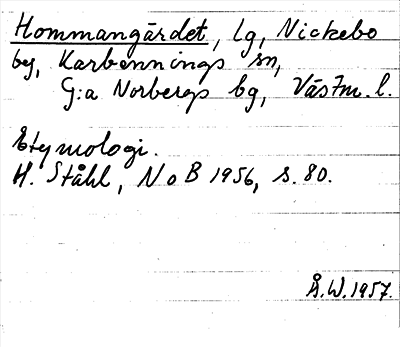 Hommangärdet, lg, Nickebo
by, Karbennings sn,
G:a Norbergs bg, Västm. l.
Etymologi.
H. Ståhl, NoB 1956, s. 80.
Å.W. 1957.